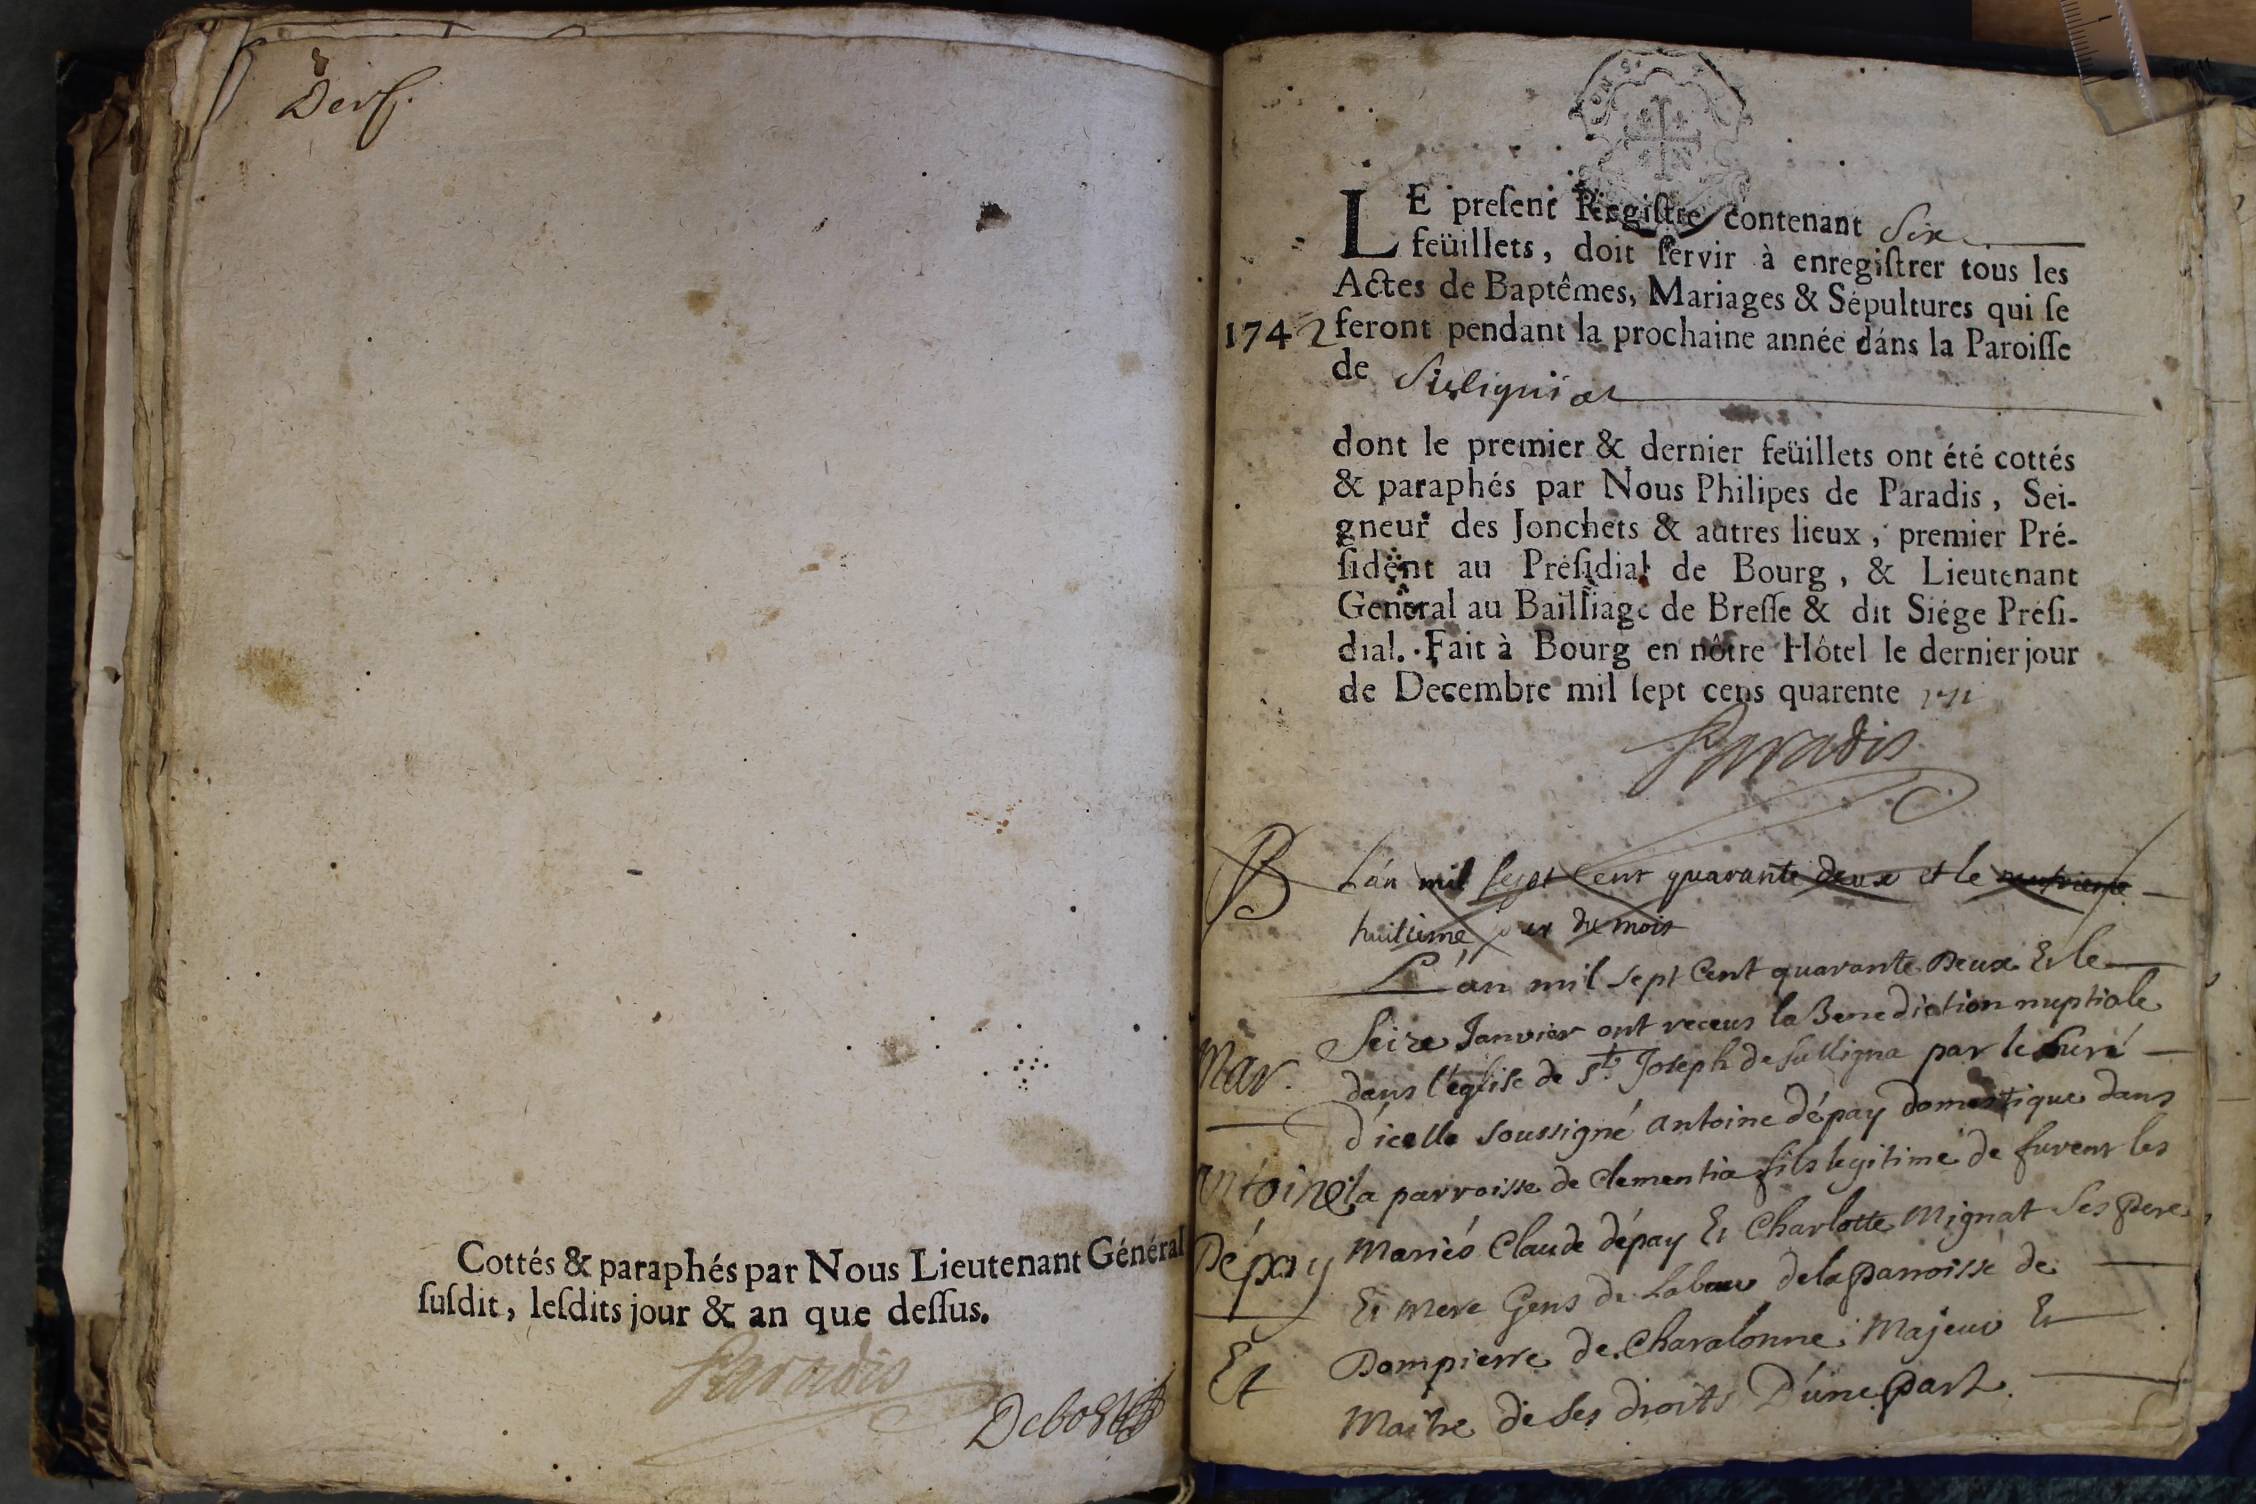 8
Derf.
Cottés & paraphés par Nous Lieutenant Général
ſuſdit, leſdits jour & an que deſſus.
Paradis
LE preſent Regiſtre contenant Six
feüillets, doit ſervir à enregiſtrer tous les
Actes de Baptêmes, Mariages & Sépultures qui ſe
1742 feront pendant la prochaine année dáns la Paroiſſe
de Suligniat
dont le premier & dernier feüillets ont été cottés
& paraphés par Nous Philipes de Paradis, Sei-
gneur des Jonchets & autres lieux, premier Pré-
ſident au Préſidial de Bourg, & Lieutenant
Genéral au Bailliage de Breſſe & dit Siége Préſi-
dial. Fait à Bourg en nôtre Hôtel le dernier jour
de Decembre mil ſept cens quarente un
Paradis
B L'an mil sept Cent quarante deux et le
huitieme jour du mois
L'an mil sept Cent quarante Deux Et le
Seize Janvier ont receus la Benediction nuptiale
Mar. dans l'eglise de St. Joseph de sulligna par le Curé
d'icelle soussigné antoine dépay domestique dans
antoine la parroisse de Clementia fils legitime de furent les
Dépay Mariés Claude dépay Et Charlotte Mignat ses Pere
Et Mere Gens de Labeur de la Parroisse de
Et Dompierre de Charalonne Majeur Et
Maitre de ses droits D'une Part.